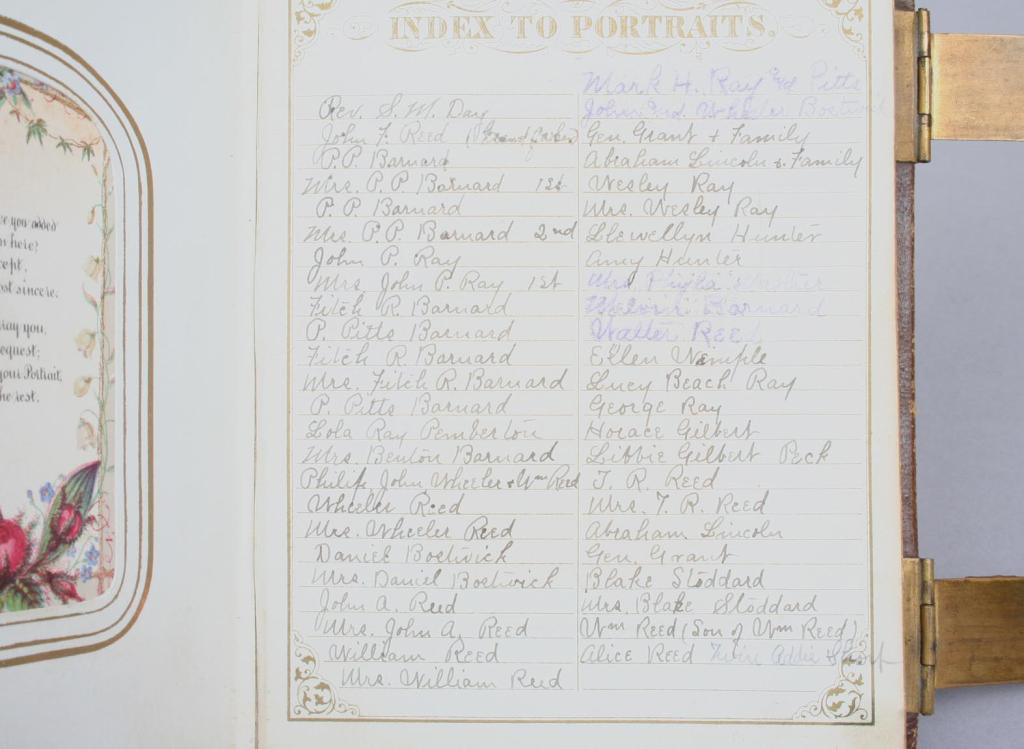 ve you added
n here?
cept,
ost sincere.
ray you,
equest;
your Portrait,
he rest.
INDEX TO PORTRAITS.
Rev. S. M. Day
John F. Reed
P. P. Barnard
Mrs. P. P. Barnard 1st
P. P. Barnard
Mrs. P. P. Barnard 2nd
John P. Ray
Mrs. John P. Ray 1st
Fitch R. Barnard
P. Pitts Barnard
Fitch R. Barnard
Mrs. Fitch R. Barnard
P. Pitts Barnard
Lola Ray Pemberton
Mrs. Benton Barnard
Philip, John Wheeler + Wm Reed
Wheeler Reed
Mrs. Wheeler Reed
Daniel Bostwick
Mrs. Daniel Bostwick
John A. Reed
Mrs. John A. Reed
William Reed
Mrs. William Reed
Mark H. Ray and Pitts
John and Wheeler Bostwick
Gen. Grant + Family
Abraham Lincoln & Family
Wesley Ray
Mrs. Wesley Ray
Llewellyn Hunter
Amy Hunter
Mrs.
Melvin Barnard
Walter Reed
Ellen Wemple
Lucy Beach Ray
George Ray
Horace Gilbert
Libbie Gilbert Peck
T. R. Reed
Mrs. T. R. Reed
Abraham Lincoln
Gen. Grant
Blake Stoddard
Mrs. Blake Stoddard
Wm Reed (Son of Wm Reed)
Alice Reed Twin Addie